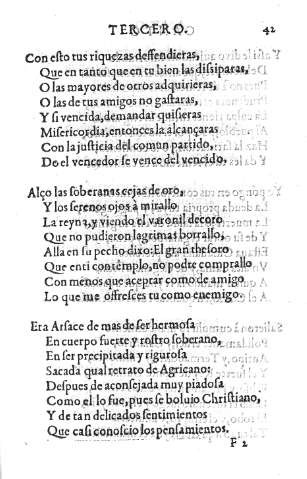 TERCERO. 42
Con esto tus riquezas deffendieras,
Que en tanto que en tu bien las dissiparas,
O las mayores de otros adquirieras,
O las de tus amigos no gastaras,
Y si vencida, demandar quisieras
Misericordia, entonces la alcançaras
Con la justicia del comun partido,
Do el vencedor se vence del vencido.
Alço las soberanas cejas de oro,
Y los serenos ojos à mirallo
La reyna, y viendo el varonil decoro
Que no pudieron lagrimas borrallo,
Alla en su pecho dixo: El gran thesoro
Que en ti contemplo, no podre comprallo
Con menos que aceptar como de amigo
Lo que me offresces tu como enemigo.
Era Arsace de mas de ser hermosa
En cuerpo fuerte y rostro soberano,
En ser precipitada y rigurosa
Sacada qual retrato de Agricano:
Despues de aconsejada muy piadosa
Como el lo fue, pues se boluio Christiano,
Y de tan delicados sentimientos
Que casi conoscio los pensamientos.
F 2